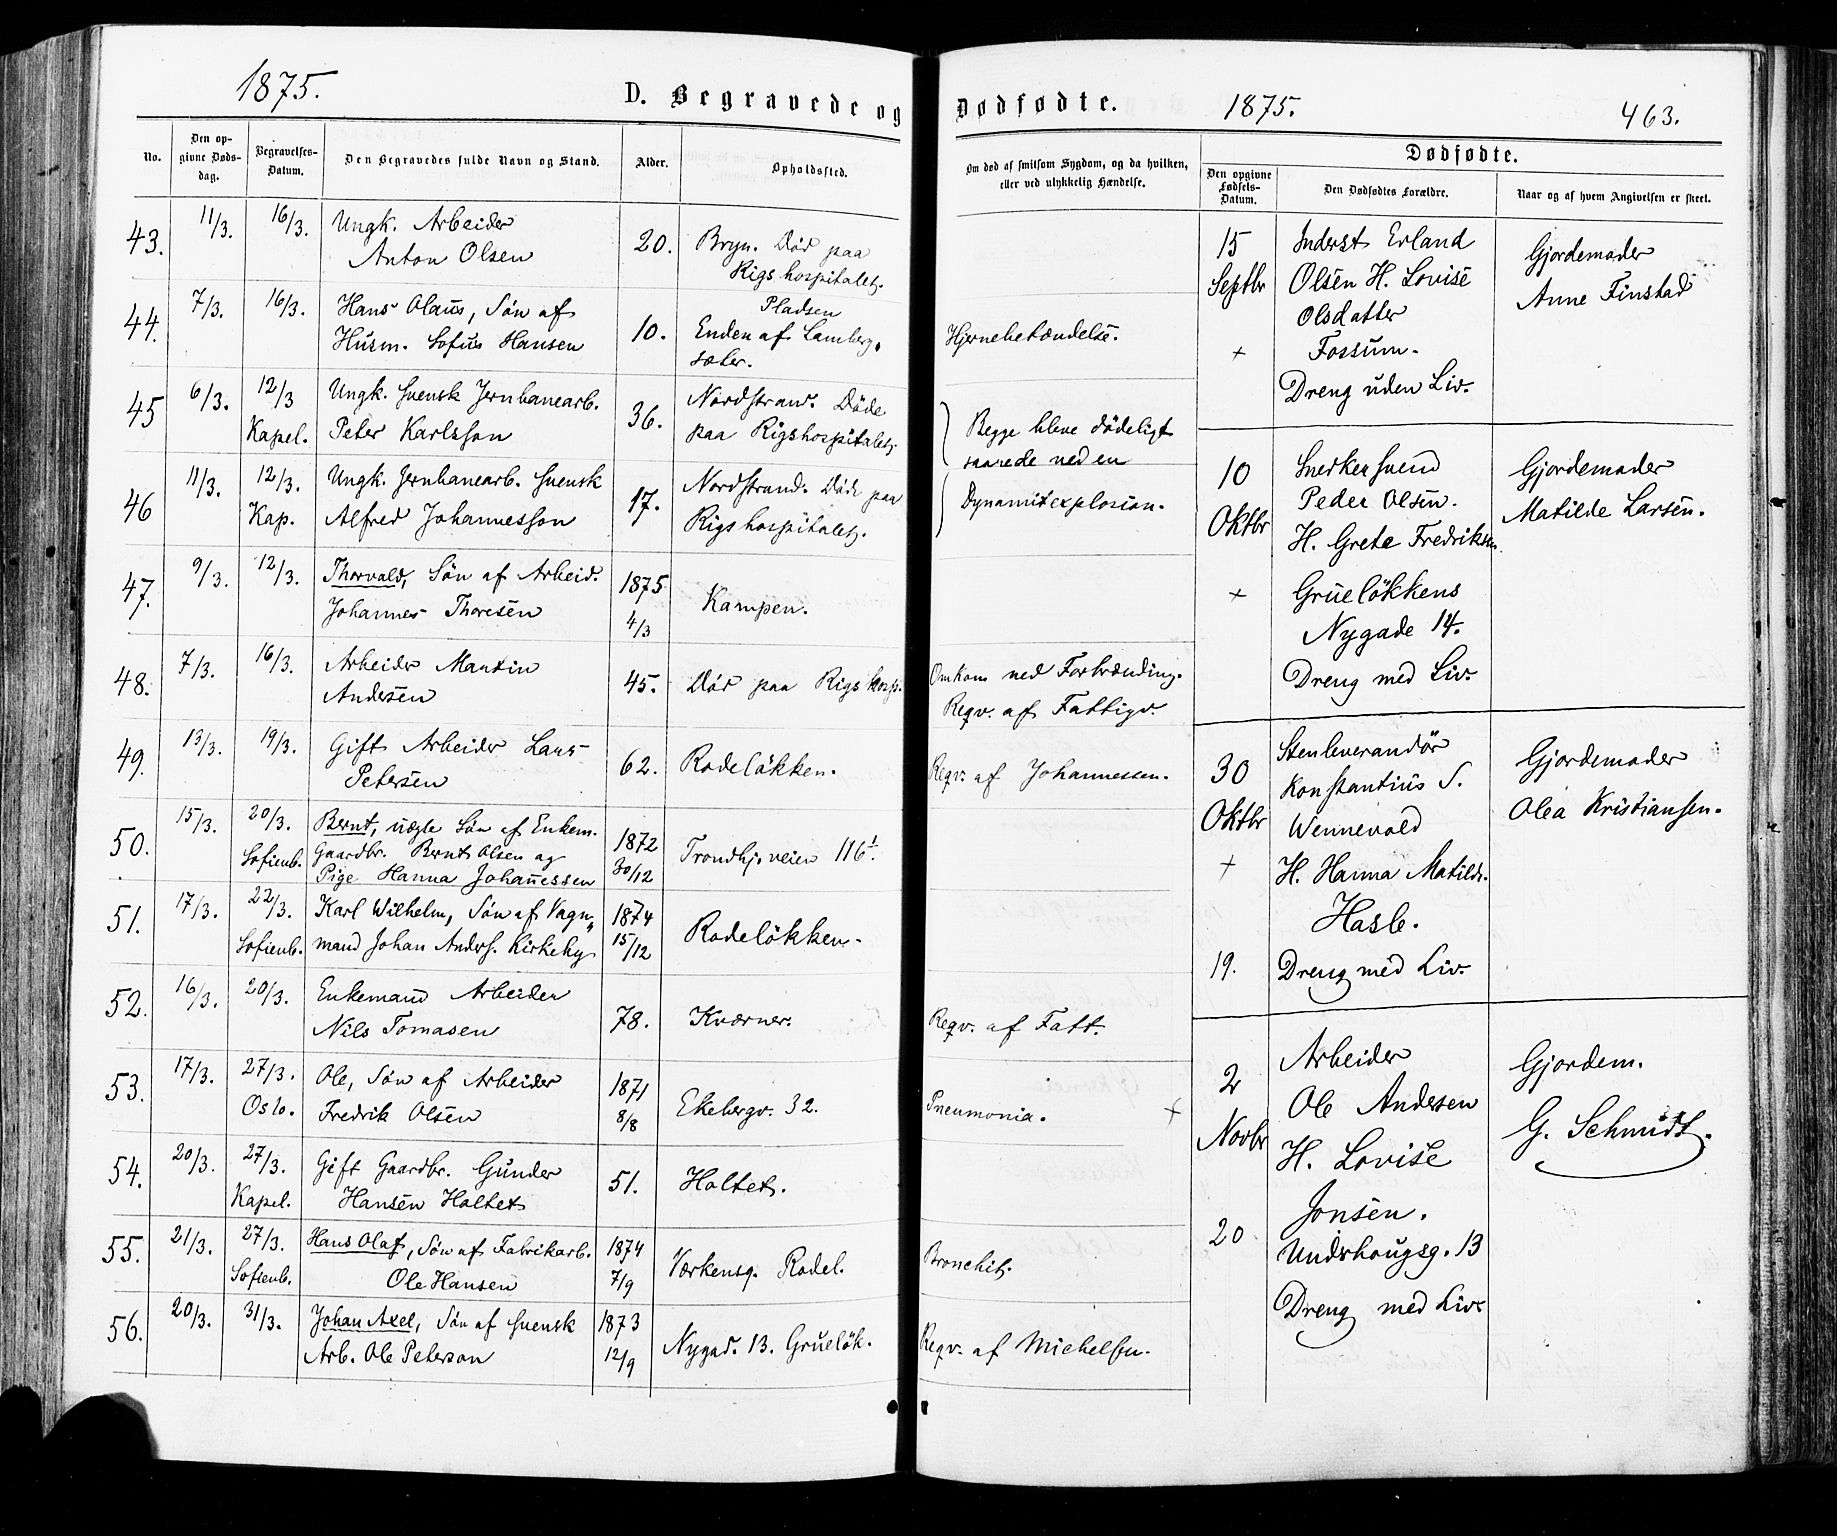 1875.
D. Begravede og Dødfødte.
1875.
463.
No.
Den opgivne Dødsdag.
Begravelses-Datum.
Den Begravedes fulde Navn og Stand.
Alder.
Opholdssted.
Om død af smitsom Sygdom, og da hvilken,
eller ved ulykkelig Hændelse.
Dødfødte.
Den opgivne Fødsels-Datum.
Den Dødfødtes Forældre.
Naar og af hvem Angivelsen er skeet.
43. 11/3. 16/3. Ungk. Arbeider
Anton Olsen
20. Bryn. Död paa
Rigshospitalet.
44. 7/3. 16/3. Hans Olaus, Sön af
Husm. Sofus Hansen
10. Pladsen
Enden af Lamberg„
sæter.
Hjernebetændelse.
45 6/3. 12/3 Ungk. svensk Jernbanearb.
Kapel. Peter Karlsson
36. Nordstrand. Döde
paa Rigshospitalet.
Begge bleve dödeligt
saarede ved en
46 11/3. 12/3. Ungk. Jernbanearb. svensk
Kap. Alfred Johannesson
17. Nordstrand. Död paa
Rigshospitalet.
Dynamitexplosion.
47. 9/3. 12/3. Thorvald, Sön af Arbeid.
Johannes Thoresen
1875
4/3
Kampen.
48. 7/3. 16/3. Arbeider Martin
Andersen
45. Död paa Rigshosp.
Omkom ved Forbrænding.
Reqv. af Fattigv.
49. 13/3. 19/3. Gift Arbeider Lars
Petersen
62. Rodelökken.
Reqv. af Johannessen.
50. 15/3. 20/3. Bernt, uægte Sön af Enkem.
Sofienb. Gaardbr. Bernt Olsen og
Pige Hanna Johannessen
1872
30/12
Trondhj.veien 116¹.
51. 17/3. 22/3. Karl Wilhelm, Sön af Vogn„
Sofienb. mand Johan Anders. Kirkeby
1874
15/12
Rodelökken.
52. 16/3. 20/3. Enkemand Arbeider
Nils Tomasen
78. Kværner.
Reqv. af Fatt.
53. 17/3. 27/3. Ole, Sön af Arbeider
Oslo. Fredrik Olsen
1871
8/8
Ekebergv. 32.
Pneumonia.
54. 20/3. 27/3. Gift Gaardbr. Gunder
Kapel. Hansen Holtet
51. Holtet.
55. 21/3. 27/3. Hans Olaf, Sön af Fabrikarb.
Sofienb. Ole Hansen
1874
7/9
Værkensg. Rodel.
Bronchit.
56. 20/3. 31/3. Johan Axel, Sön af svensk
Arb. Ole Peterson
1873
12/9
Nygad. 13. Gruelök.
Reqv. af Michelsen.
15
Septbr
+
Inderst Erland
Olsen H. Lovise
Olsdatter
Fossum.
Dreng uden Liv.
Gjordemoder
Anne Finstad
10
Oktbr
+
Snedkersvend
Peder Olsen.
H. Grete Fredriksen
Gruelökkens
Nygade 14.
Dreng med Liv.
Gjordemoder
Matilde Larsen.
30
Oktbr
+
19.
Stenleverandör
Konstantius S.
Wennevold
H. Hanna Matilde.
Hasle.
Dreng med Liv.
Gjordemoder
Olea Kristiansen.
+
2
Novbr
20
Arbeider
Ole Andersen
H. Lovise
Jonsen.
Underhaugsg. 13
Dreng med Liv.
Gjordem.
G. Schmidt.